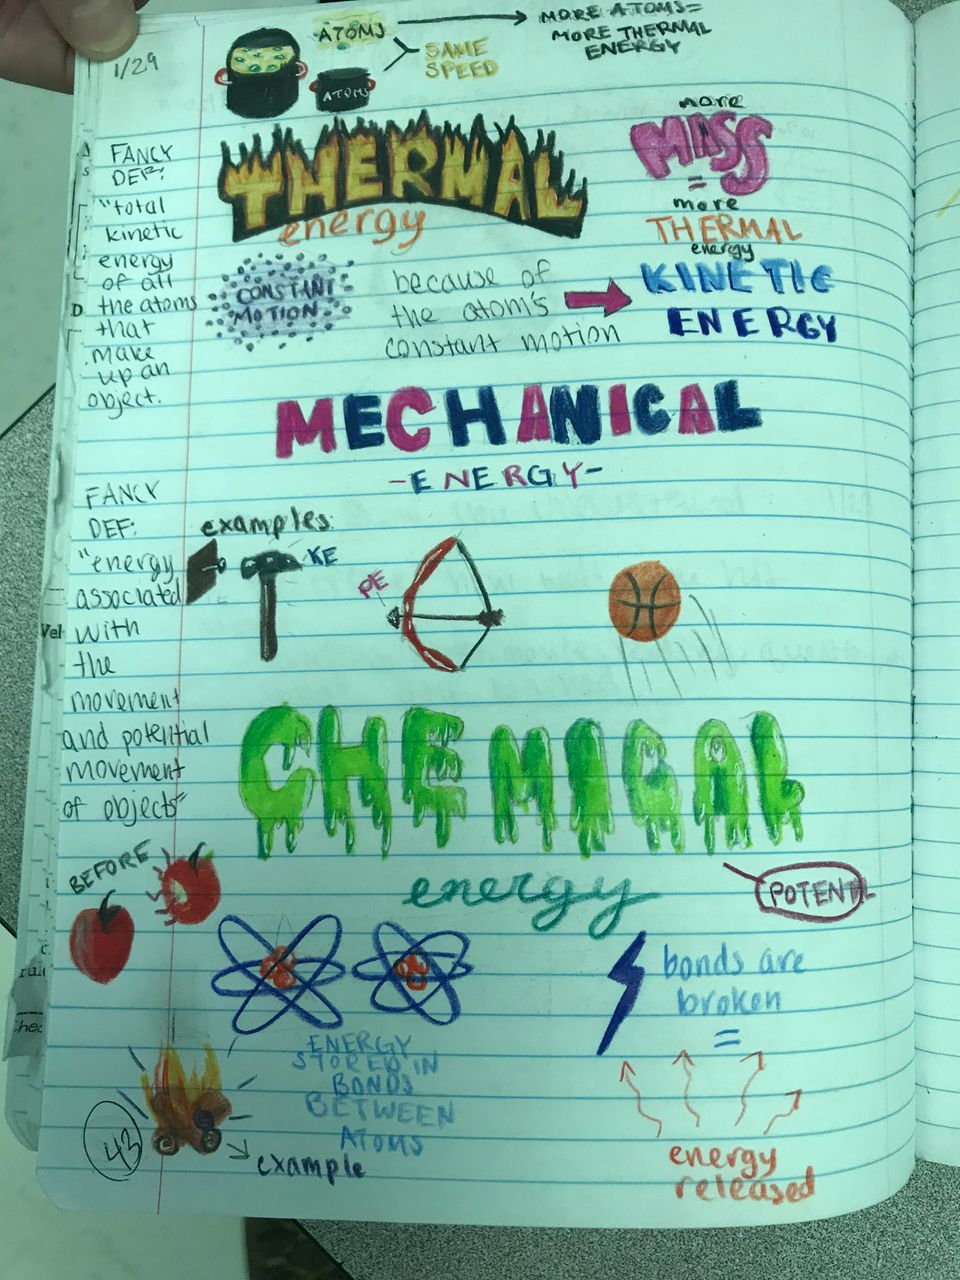 1/29
ATOMS
ATOMS
SAME
SPEED
MORE ATOMS=
MORE THERMAL
ENERGY
FANCY
DEF:
"total
kinetic
energy
of all
the atoms
that
make
up an
object.
THERMAL
energy
more
MASS
=
more
THERMAL
energy
CONSTANT
MOTION
because of
the atom's
constant motion
KINETIC
ENERGY
MECHANICAL
-ENERGY-
FANCY
DEF:
"energy
associated
with
the
movement
and potential
movement
of objects"
examples:
KE
PE
CHEMICAL
energy
POTENTL
BEFORE
bonds are
broken
=
energy
released
ENERGY
STORED IN
BONDS
BETWEEN
ATOMS
example
43
Vel
D